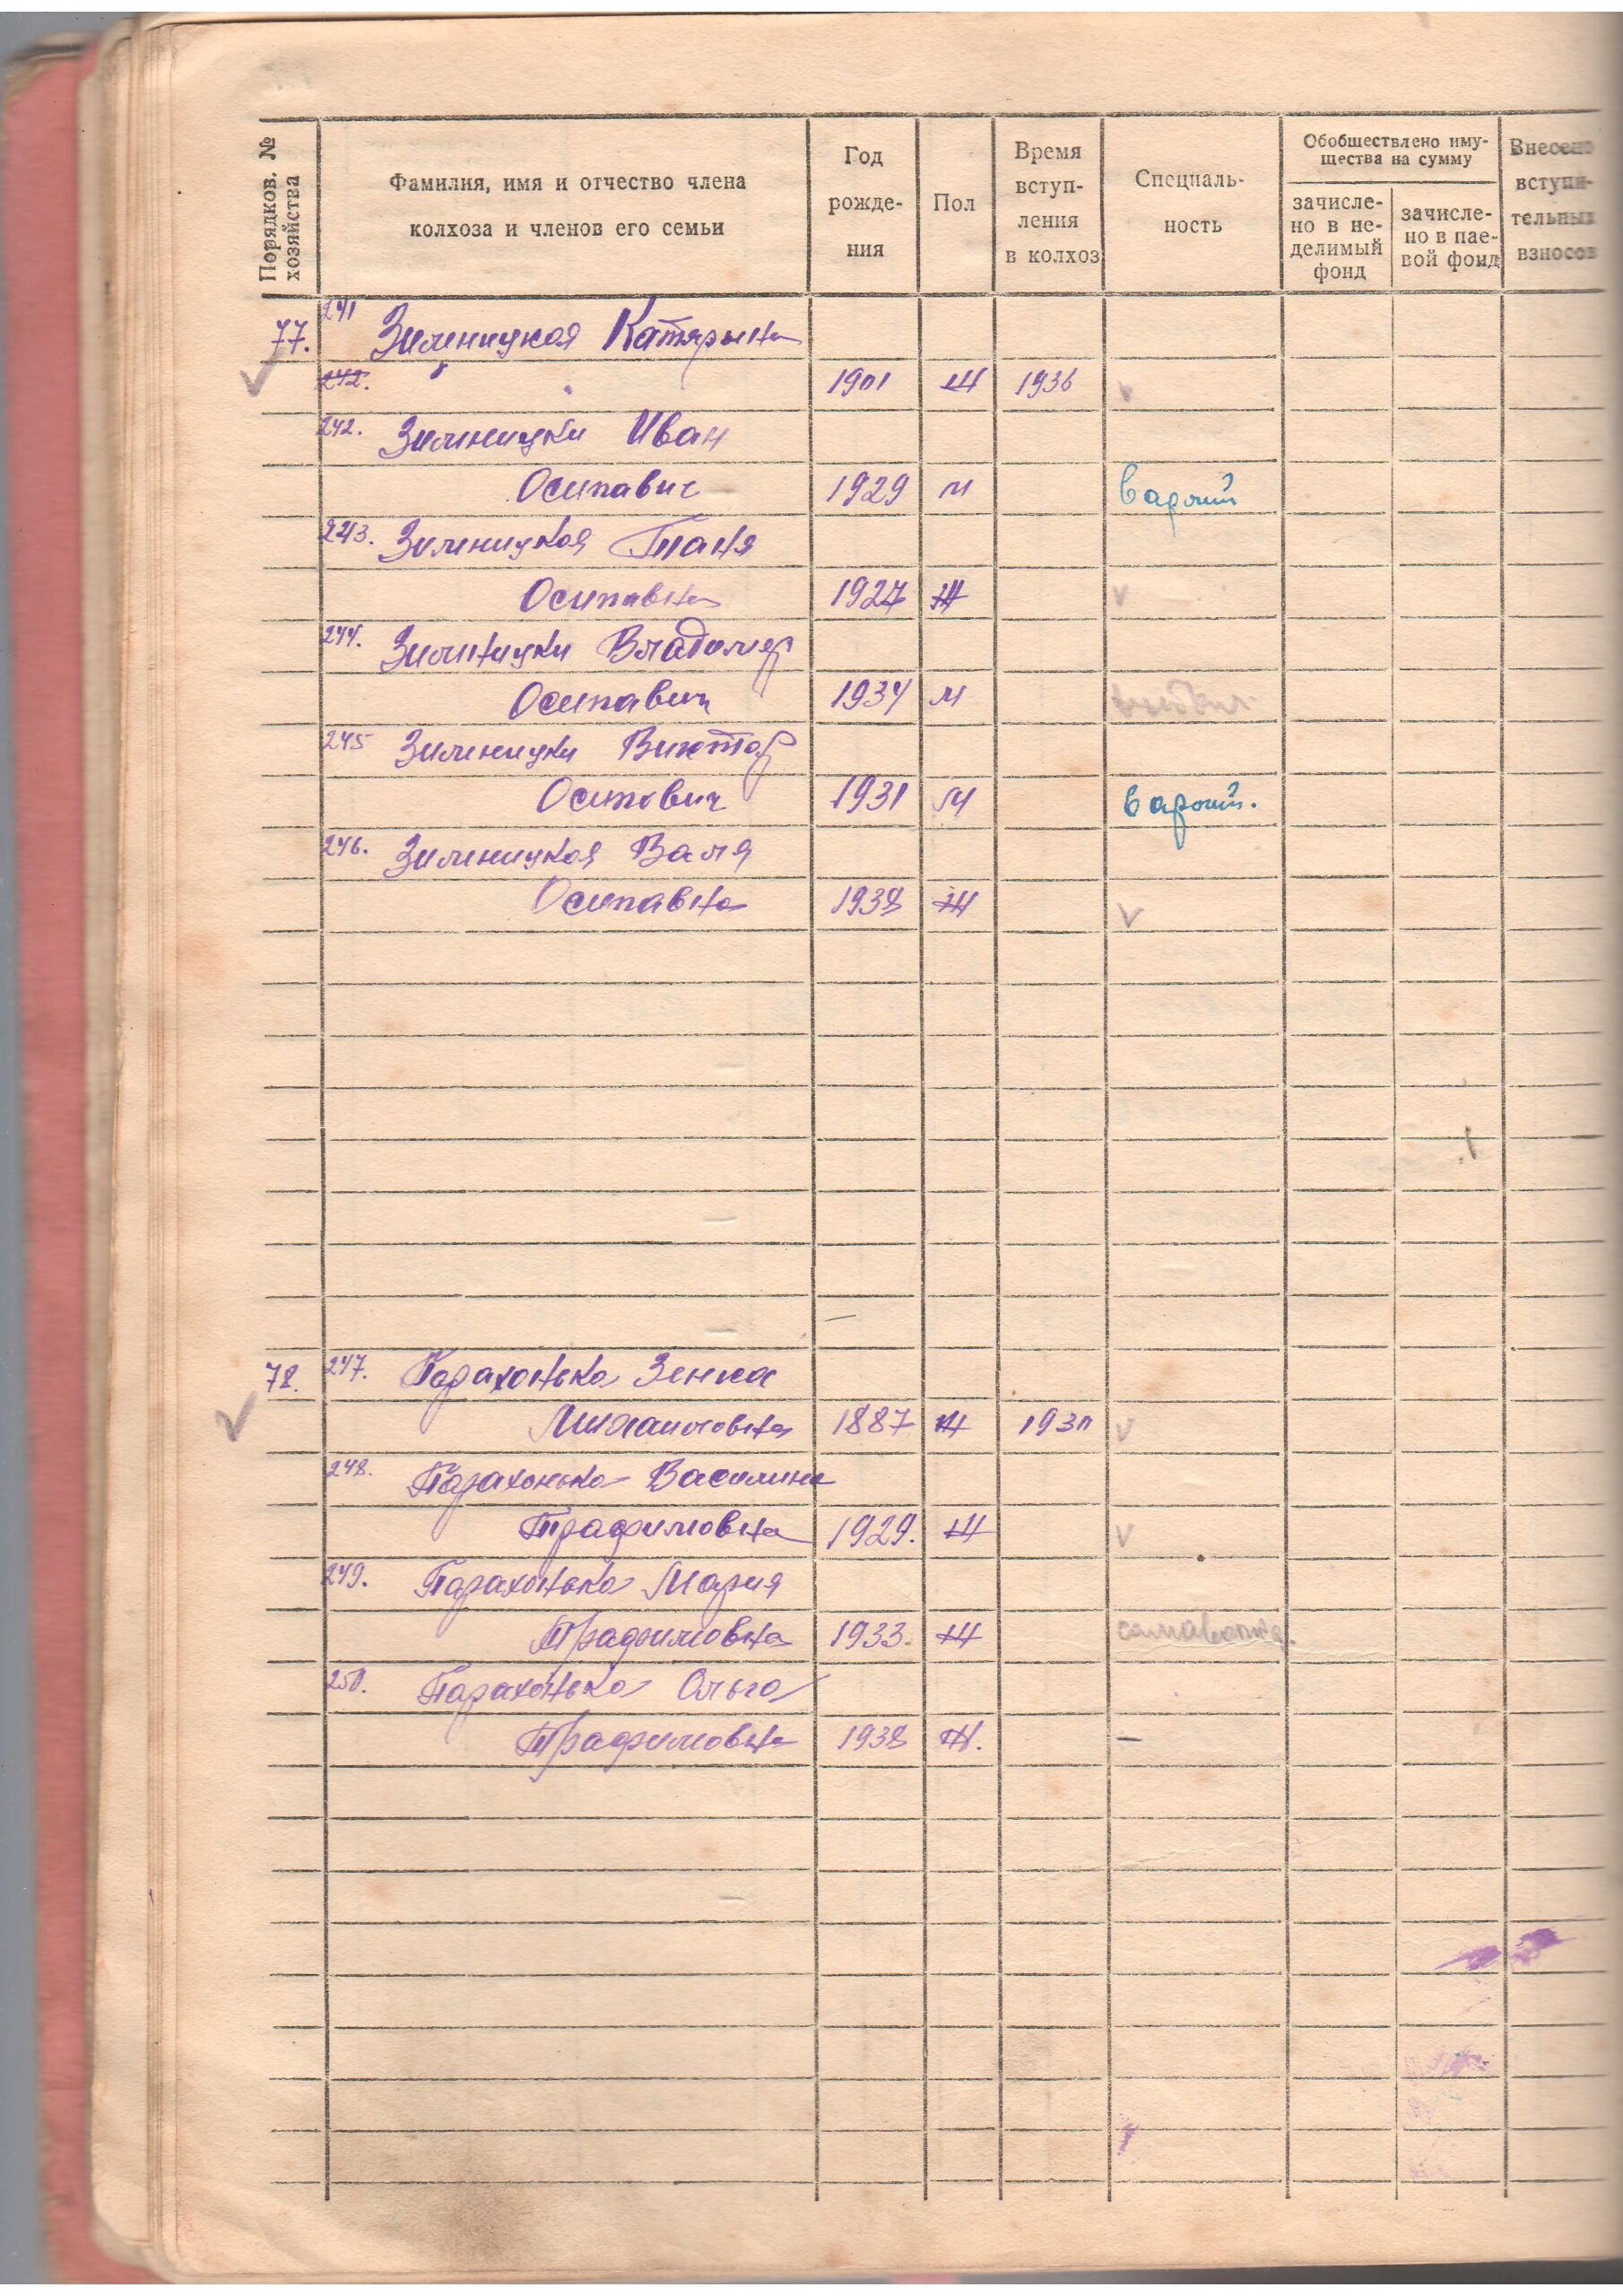 Порядков. № хозяйства
Фамилия, имя и отчество члена
колхоза и членов его семьи
Год
рожде-
ния
Пол
Время
вступ-
ления
в колхоз
Специаль-
ность
Обобществлено иму-
щества на сумму
зачисле-
но в не-
делимый
фонд
зачисле-
но в пае-
вой фонд
Внесено
вступи-
тельных
взносов
77. 241 Зилиницкая Катярына
242. 1901 Ж 1936
242. Зилиницки Иван
Осипавич 1929 м
243. Зилиницкая Таня
Осипавна 1927 Ж
244. Зилиницки Владимер
Осипавич 1934 м
245 Зилиницки Виктор
Осипович 1931 М
246. Зилиницкая Валя
Осипавна 1938 Ж
78. 247. Парахонько Зенка
Михаиловна 1887 Ж 1930
248. Парахонько Василина
Трафимовна 1929. Ж
249. Парахонько Мария
Трафимовна 1933. Ж
250. Парахонько Ольга
Трафимовна 1938 Ж.